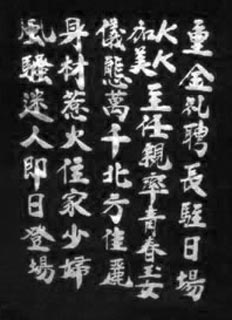 重金礼聘長駐日場
KK加美主任親率青春玉女
儀態萬千北方佳麗
身材惹火住家少婦
風騷迷人即日登場